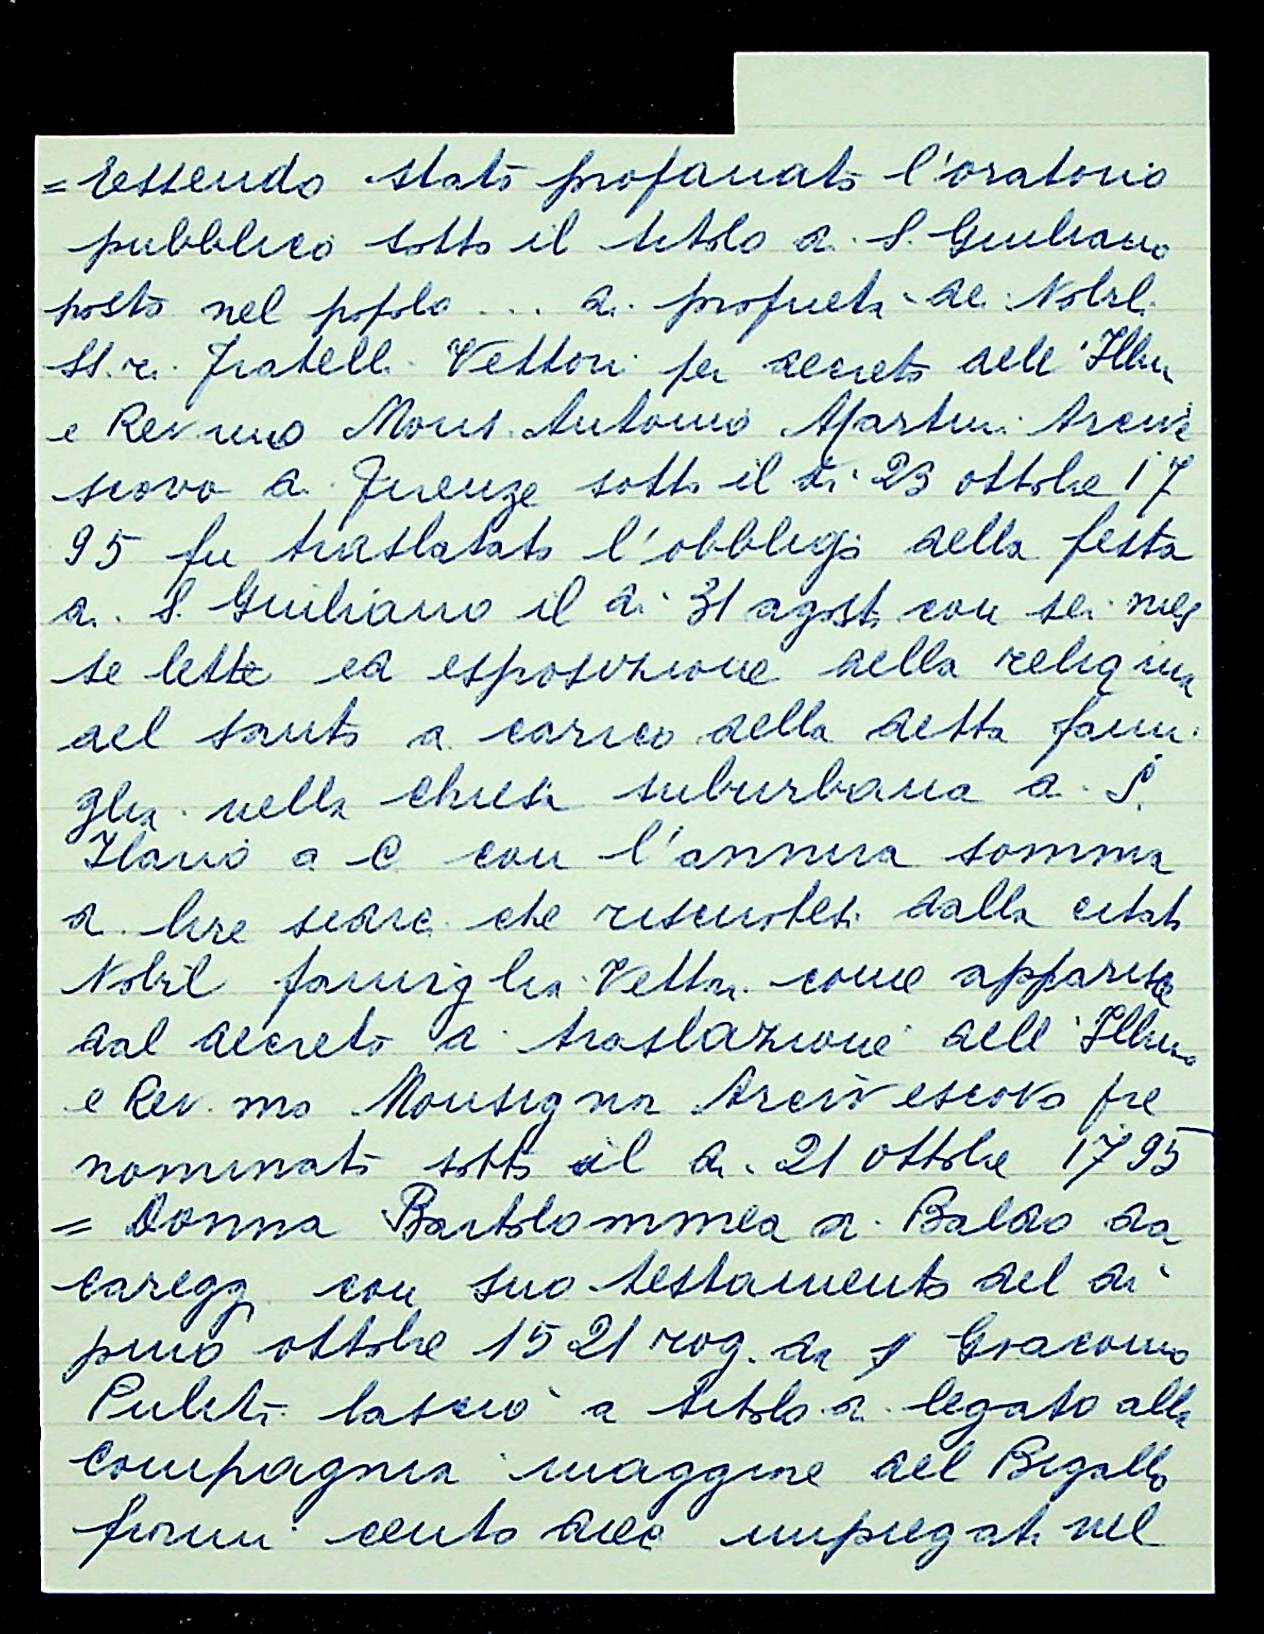 = Essendo stato profanato l'oratorio
pubblico sotto il titolo di S. Giuliano
posto nel popolo ... di proprietà dei Nobil.
SS.ri Fratelli Vettori per decreto dell'Illm
e Rev.mo Mons. Antonio Martini Arcive
scovo di Firenze sotto il dì 23 ottobre 17
95 fu traslatato l'obbligo della festa
di S. Giuliano il dì 31 agosto con sei mes
se lette ed esposizione della reliquia
del santo a carico della detta fami
glia nella chiesa suburbana di S.
Ilario a C con l'annua somma
di lire che riscuotesi dalla citata
Nobil famiglia Vettori come apparisce
dal decreto di traslazione dell'Illmo
e Rev.mo Monsignor Arcivescovo pre
nominato sotto il dì 21 ottobre 1795
= Donna Bartolommea di Baldo da
Careggi con suo testamento del dì
primo ottobre 1521 rog. da S Giacomo
Puliti lasciò a titolo di legato alla
Compagnia maggiore del Bigallo
fiorini cento dieci impiegati nel